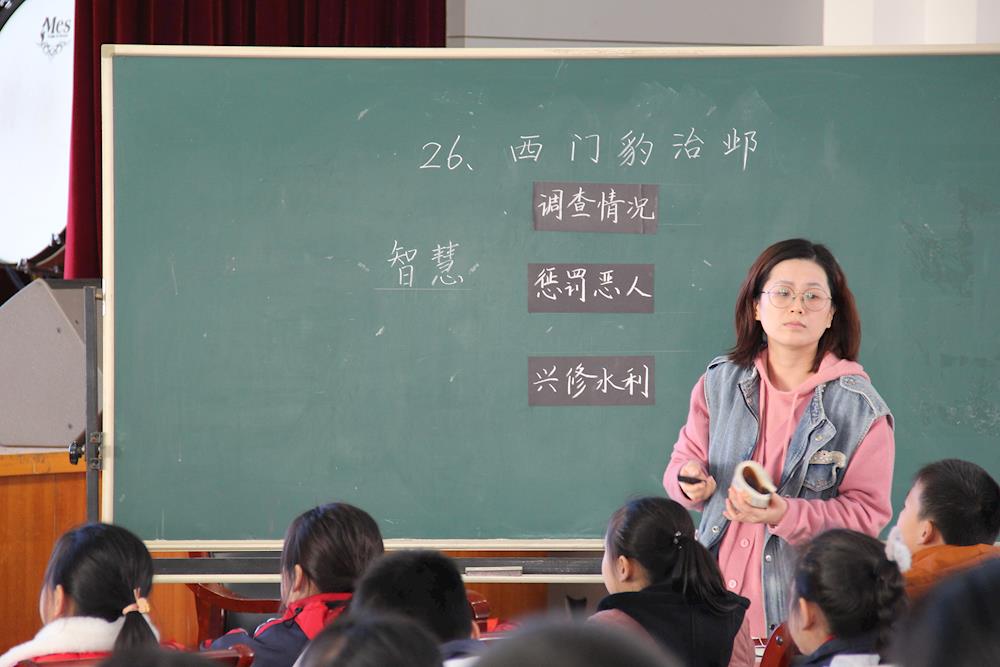 Mes
26、西门豹治邺
调查情况
智慧
惩罚恶人
兴修水利